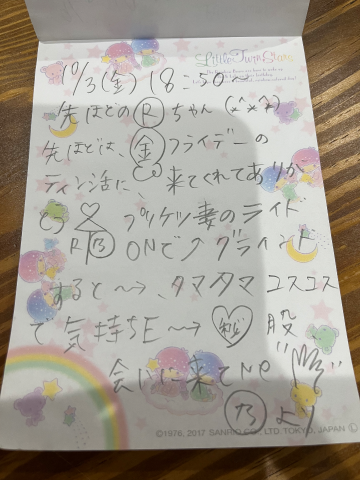 Little Twin Stars
10/3(金) 18:50〜
先ほどの Rちゃん (x^x^x)
先ほどは、金フライデーの
ティン活に、来てくれてありが
とう♡ プッケツ妻のライド
R 乃 ONで↗グラインド
すると〜→、タマタマ コスコス
で 気持ちE〜→ 股
会いに来てNP
乃より
©1976, 2017 SANRIO CO., LTD. TOKYO, JAPAN Ⓛ